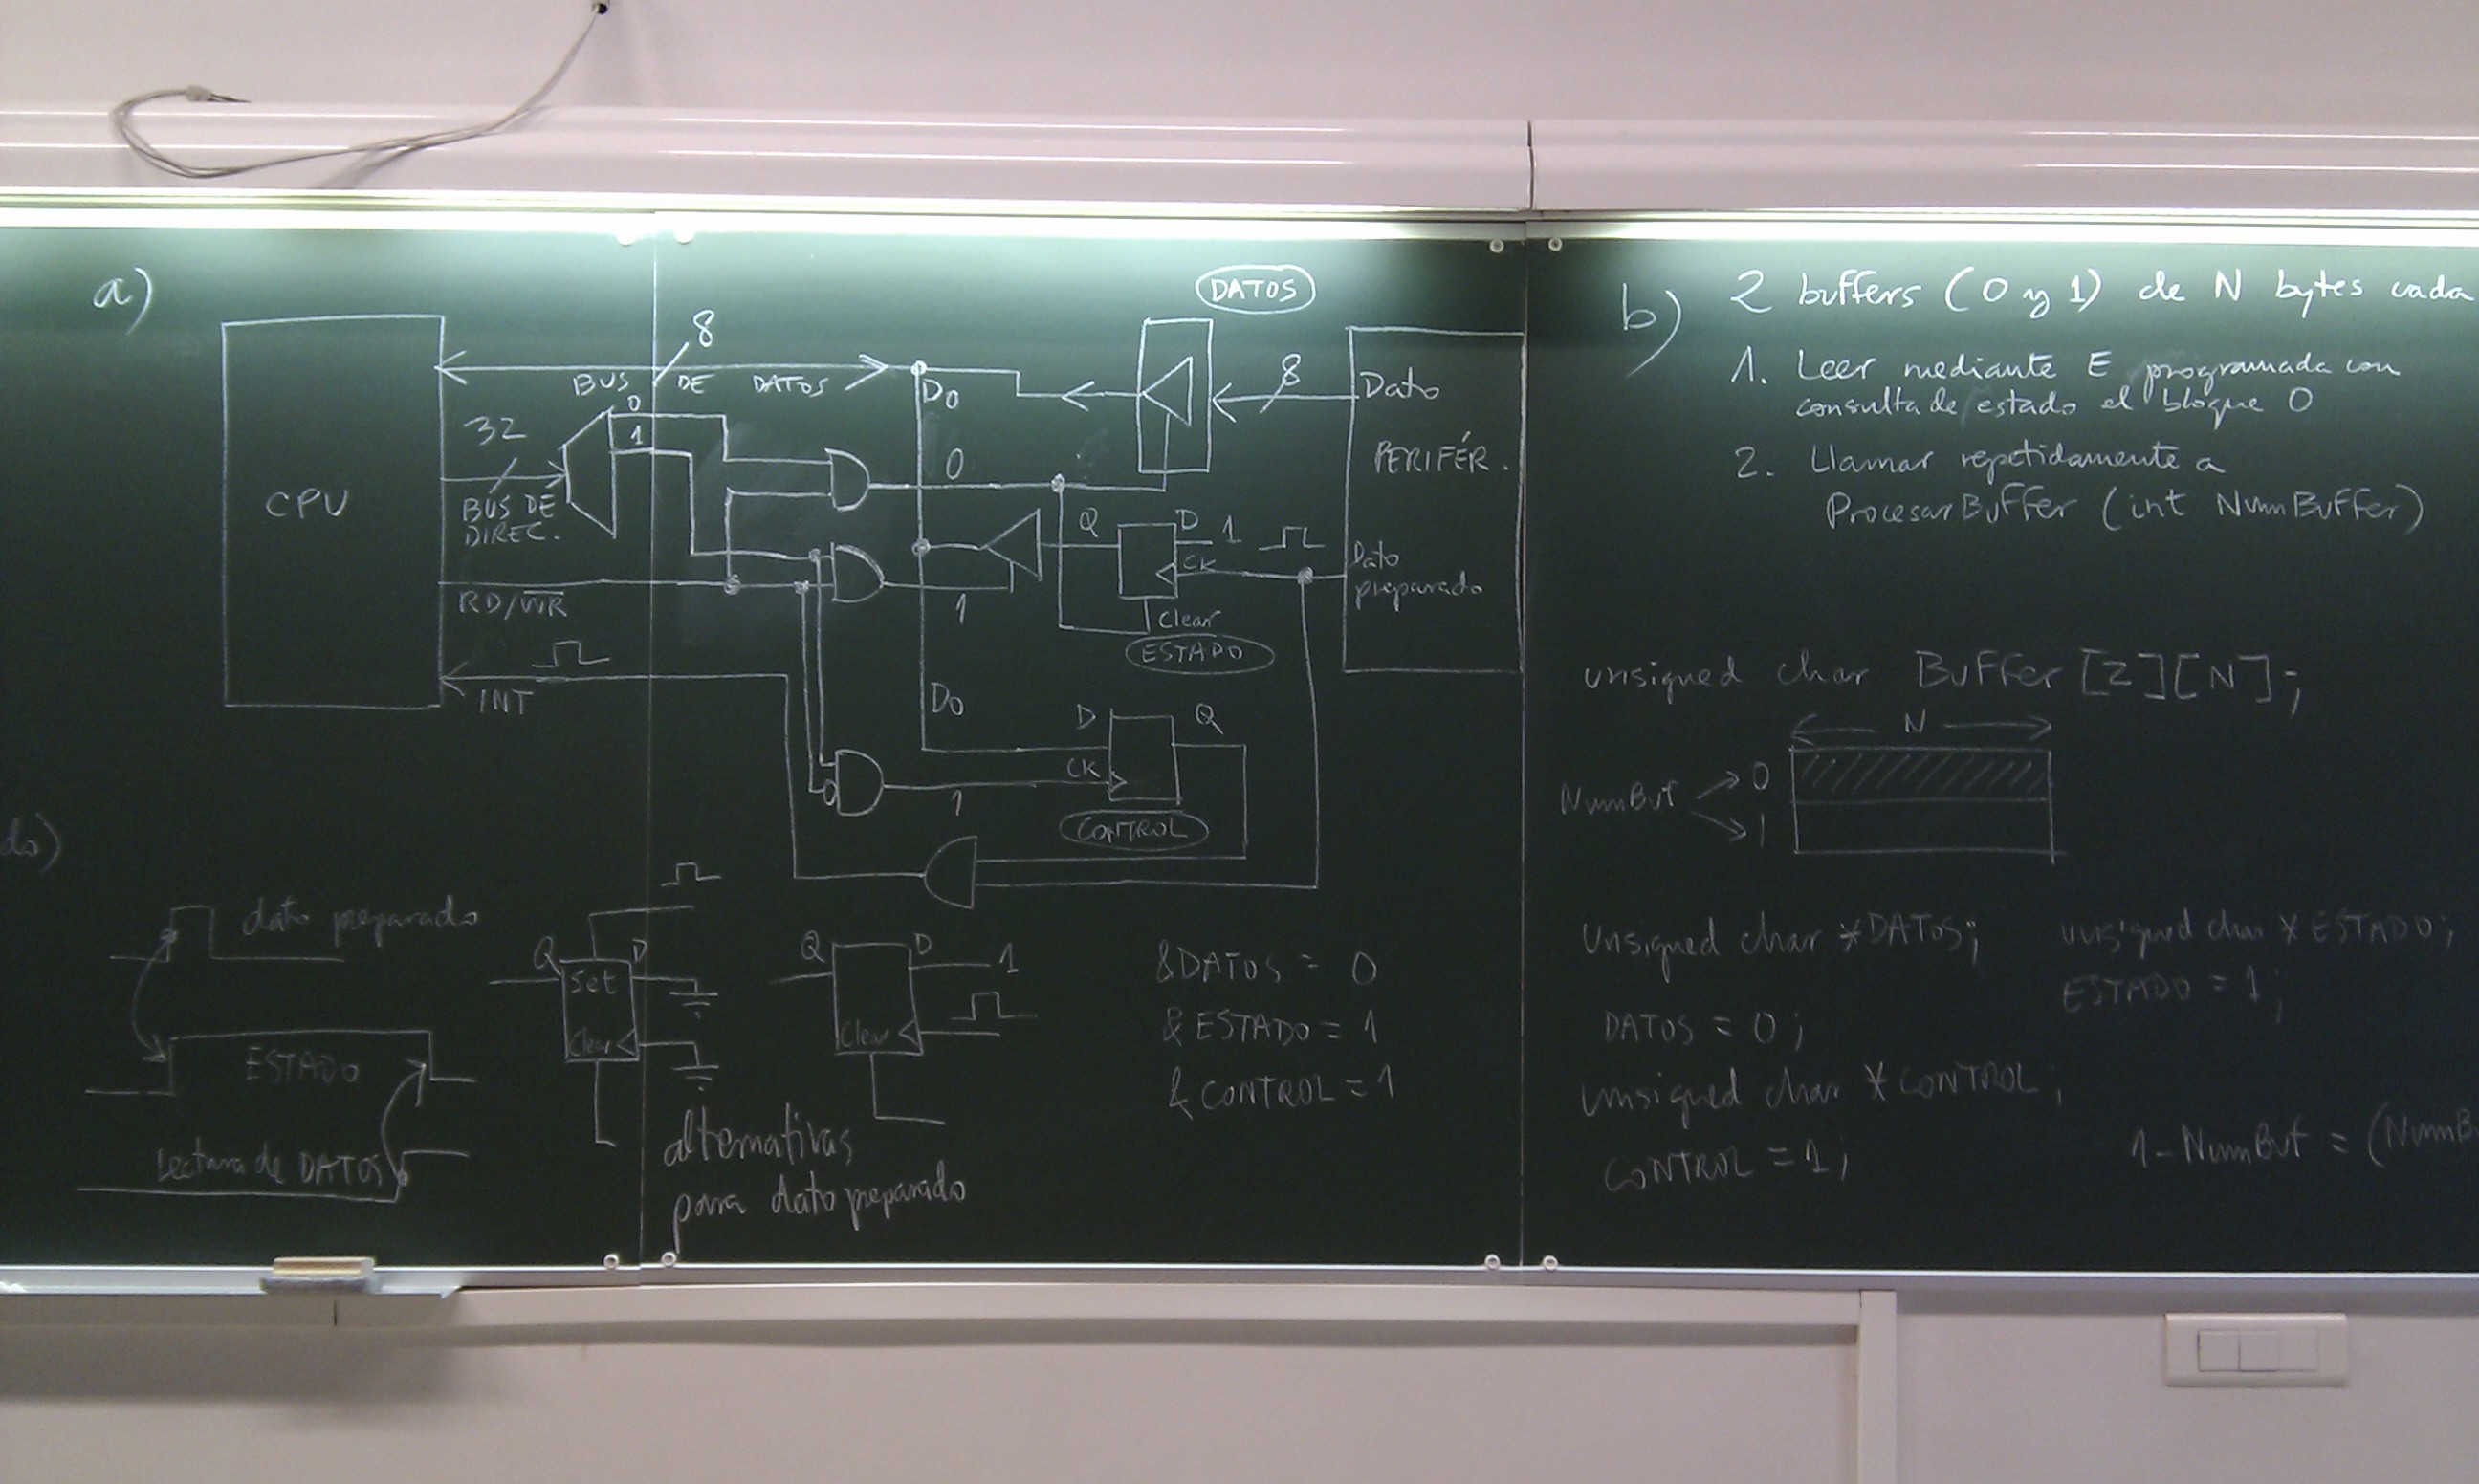 a)
CPU
8
BUS DE DATOS
32
BUS DE
DIREC.
0
1
RD/WR
INT
D0
0
1
D0
1
DATOS
8
Dato
PERIFÉR.
Dato
preparado
Q
D
1
CK
Clear
ESTADO
D
Q
CK
CONTROL
do)
dato preparado
ESTADO
Lectura de DATOS
Q
D
Set
Clear
Q
D
1
Clear
alternativas
para dato preparado
&DATOS = 0
&ESTADO = 1
&CONTROL = 1
b)
2 buffers (0 y 1) de N bytes cada
1. Leer mediante E programada con
consulta de estado el bloque 0
2. Llamar repetidamente a
ProcesarBuffer (int NumBuffer)
unsigned char Buffer [2][N];
N
NumBuf
0
1
unsigned char *DATOS;
DATOS = 0;
unsigned char *ESTADO;
ESTADO = 1;
unsigned char *CONTROL;
CONTROL = 1;
1-NumBuf = (NumB